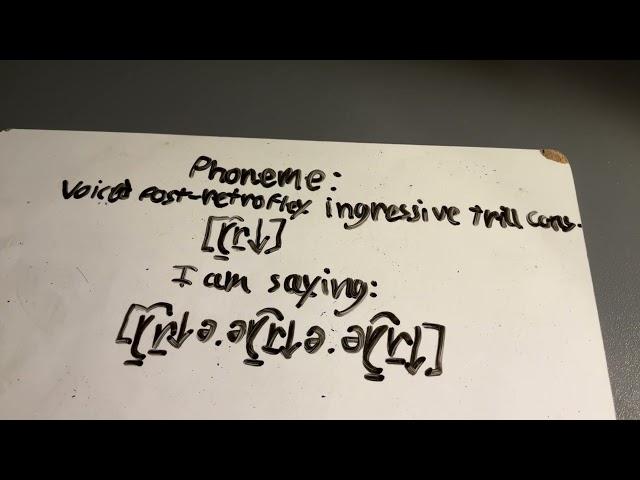 Phoneme:
Voiced Post-retroflex ingressive trill cons.
[ɽ͡r̠↓]
I am saying:
[ɽ͡r̠↓ə.əɽ͡r̠↓ə.əɽ͡r̠↓]